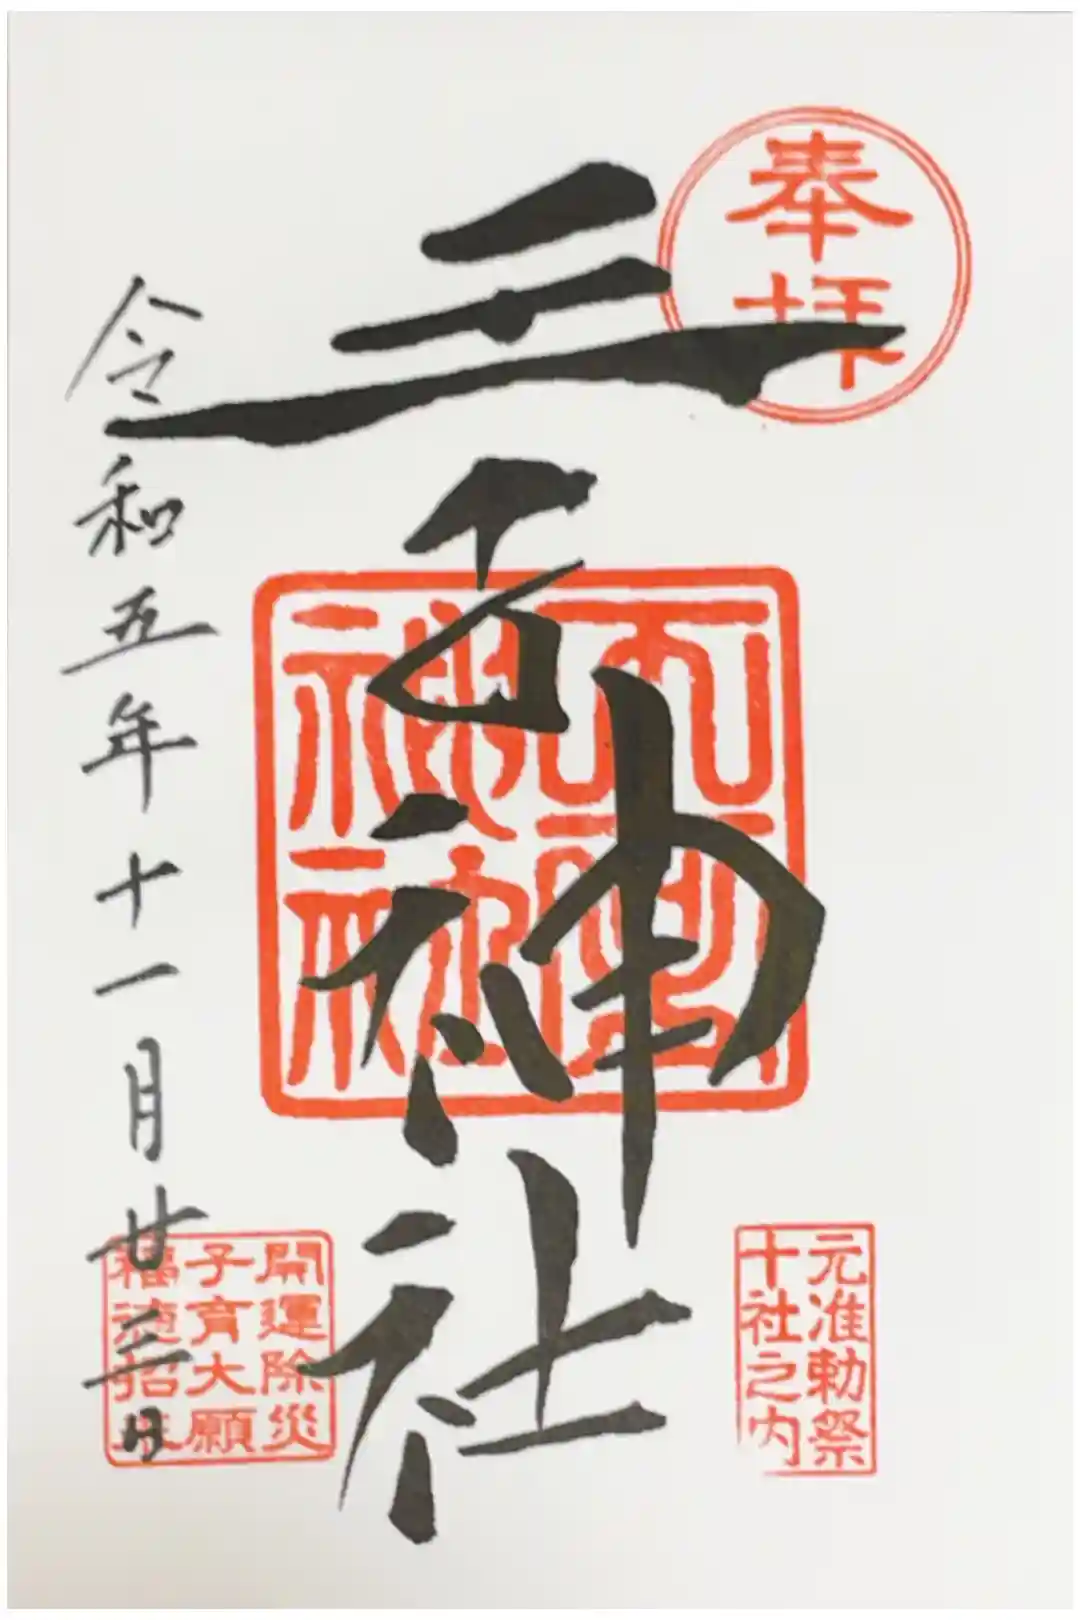 奉拝
王子神社
令和五年十一月廿三日
元准勅祭
十社之内
開運除災
子育大願
福徳招来